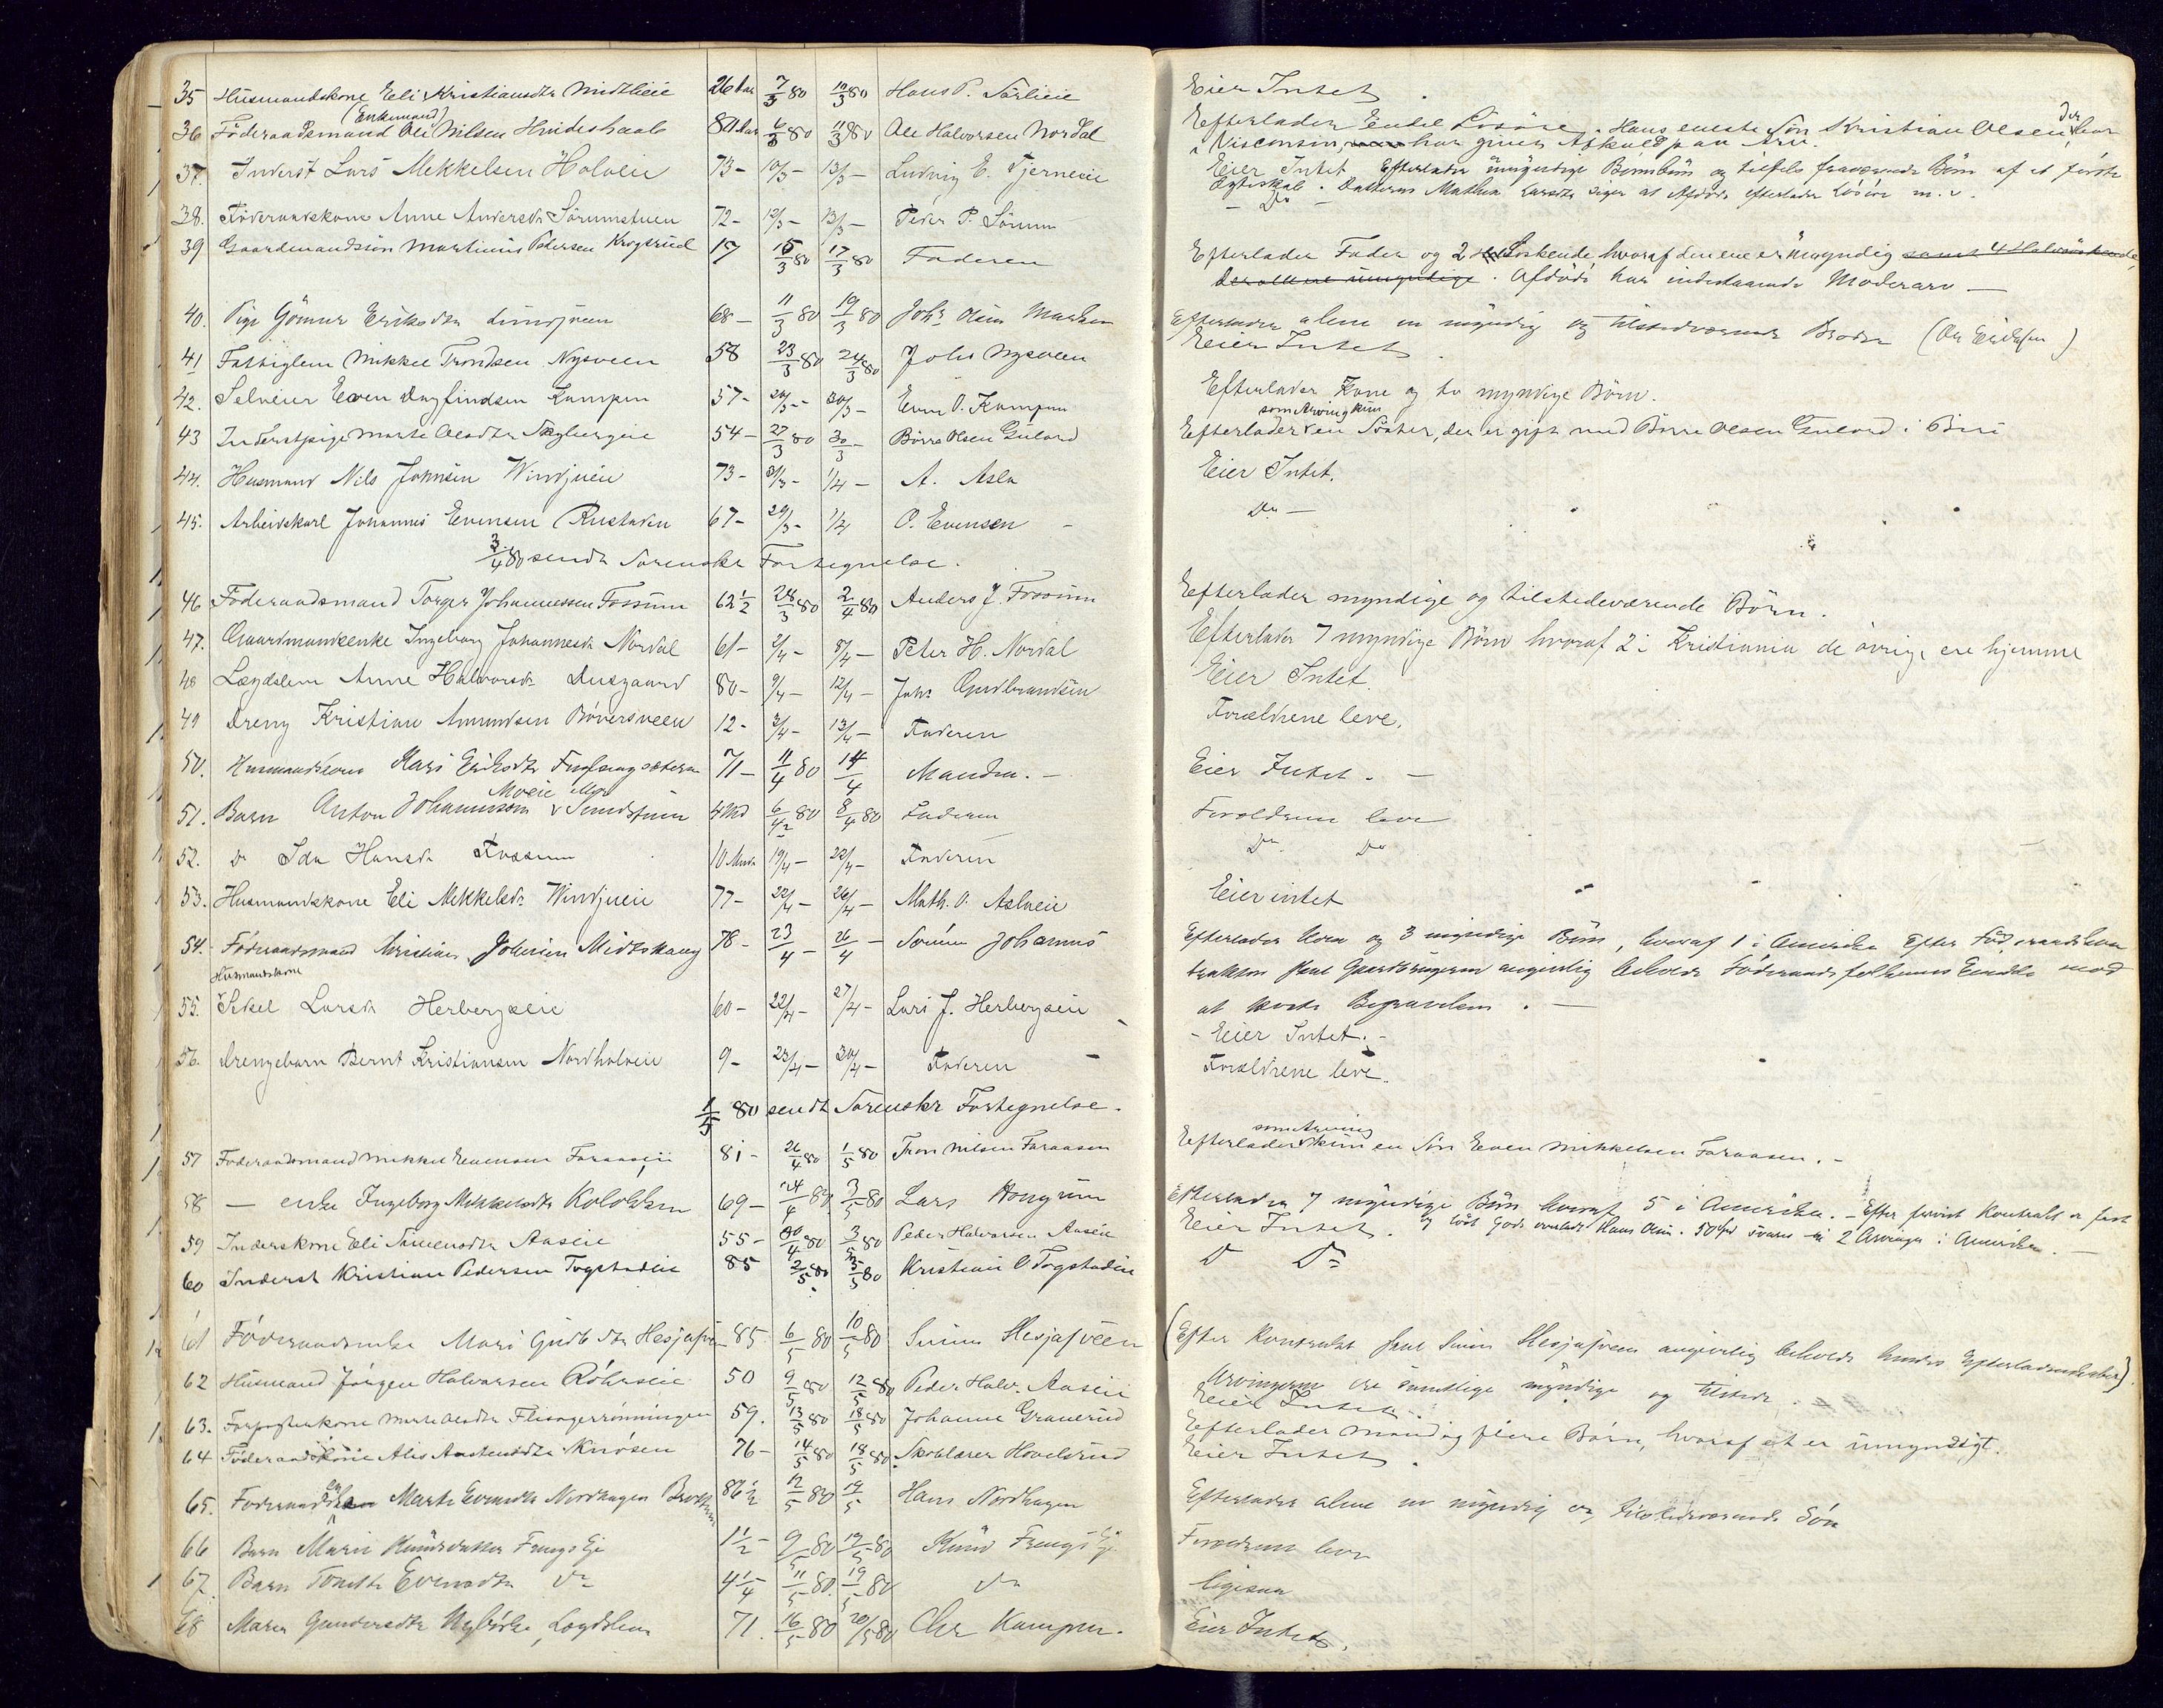 35 Husmandskone Eli Kristiansdtr Midtlieie 26 Aar 7/3 80 10/3 80 Hans P. Sørlieie Eier Intet.
(Enkemand)
36 Føderaadsmand Ole Nilsen Hindeshaab 80 Aar 6/3 80 11/3 80 Ole Halvorsen Nordal Efterlader Endel Løsøre. Hans eneste Søn Kristian Olsen, der bor
i Visconsin, har givet Afkald paa Arv.
37. Inderst Lars Mekkelsen Holveie 73 - 10/3 - 13/3 - Ludvig E. Tjerneie Eier Intet Efterlader umyndige Børnebørn og tildels fraværende Børn af et første
Egteskab. Datteren Mathea Larsdtr siger at Afdøde efterlader Løsøre m. v.
38. Føderaadskone Anne Andersdr Sørumstuen 72 - 12/3 - 13/3 - Peder P. Sørum - Do -
39 Gaardmandssøn Martinus Pedersen Krogsrud 17 15/3 80 17/3 80 Faderen Efterlader Fader og 2 Søskende, hvoraf den ene er umyndig samt 4 Halvsøskende,
der alle ere umyndige. Afdøde har indestaaende Mødrearv -
40. Pige Gønner Eriksdtr Lundjuen 68 - 11/3 80 19/3 80 Johs Olsen Marken Efterlader alene en myndig og tilstedværende Broder (Ole Eriksen)
41 Fattiglem Mikkel Trondsen Nysveen 58 23/3 80 24/3 80 Johs Nysveen Eier Intet.
42. Selveier Even Dagfindsen Kampen 57 - 24/3 - 30/3 - Even O. Kampen Efterlader Kone og to myndige Børn.
som Arving kun
43 Inderstpige Marte Olsdtr Skybergeie 54 - 27/3 80 30/3 - Børre Olsen Gulord Efterlader en Søster, der er gift med Børre Olsen Gulord i Biri
44. Husmand Nils Johnsen Windjueie 73 - 31/3 - 1/4 - A. Asla Eier Intet.
45. Arbeidskarl Johannes Evensen Rustaden 67 - 29/3 - 1/4 O. Evensen - Do -
3/4 80 sendt Sorenskr Fortegnelse.
46 Føderaadsmand Torger Johannessen Fossum 62 1/2 28/3 80 2/4 80 Anders J. Fossum Efterlader myndige og tilstedeværende Børn.
47. Gaardmandsenke Ingeborg Johannesdr Nordal 61 - 2/4 - 8/4 - Peter H. Nordal Efterlader 7 myndige Børn hvoraf 2 i Kristiania de øvrige ere hjemme
48 Lægdslem Anne Halvorsdr Dusgaard 80 - 9/4 - 12/4 - Johs Gudbrandsen Eier Intet.
49 Dreng Kristian Amundsen Bøversveen 12 - 3/4 - 13/4 - Faderen Forældrene leve.
50. Husmandskone Kari Eriksdtr Fuglangsæteren 71 - 11/4 80 14/4 Manden. - Eier Intet. -
51. Barn Anton Johannessen Sundsfuen 4 Md 6/4 80 8/4 80 Faderen Forældrene leve
52. Do Ida Hansdr Fossum 10 Mndr 19/4 - 22/4 - Faderen Do Do
53. Husmandskone Eli Mekkelsdr Windjueie 77 - 22/4 - 26/4 - Math. O. Aslaeie Eier intet
54. Føderaadsmand Kristian Johnsen Midtskaug 78 - 23/4 - 26/4 - Sønnen Johannes Efterlader Kone og 3 myndige Børn, hvoraf 1 i Amerika Efter Føderaadskon
trakten skal Gaardbrugeren angivelig beholde Føderaadsfolkenes Eiendele mod
at koste Begravelsen. -
Husmandskone
55. Sidsel Larsdr Herbergseie 60 - 22/4 - 27/4 - Lars J. Herbergseie - Eier Intet. -
56. Drengebarn Bernt Kristiansen Nordholveie 9 - 23/4 - 30/4 - Faderen Forældrene leve.
1/5 80 sendt Sorenskr Fortegnelse.
som Arving
57 Føderaadsmand Mikkel Evensen Faraaseie 81 - 26/4 80 1/5 80 Tron Nilsen Faraasen Efterlader kun en Søn Even Mikkelsen Faraasen. -
58 - enke Ingeborg Mikkelsdtr Kolobkken 69 - 24/4 80 3/5 80 Lars Efterlader 7 myndige Børn hvoraf 5 i Amerika. - Efter forevist Kontrakt er fast
og løst Gods overladt Hans Olsen. 50 Spd svares til 2 Arvinger i Amerika. -
59 Inderstkone Eli Simensdtr Aaseie 55 - 30/4 80 3/5 80 Peder Halvorsen Aaseie Eier Intet.
60 Inderst Kristian Pedersen Togstadeie 85 2/5 80 3/5 80 Kristian O Togstadeie Do Do
61 Føderaadsenke Mari Gudbdtr Hesjasveen 85 6/5 80 10/5 80 Simen Hesjasveen (Efter Kontrakt skal Simen Hesjasveen angivelig beholde hendes Efterladenskaber).
Arvingerne ere samtlige myndige og tilstede.
62 Husmand Jørgen Halvorsen Røhrseie 50 9/5 80 12/5 80 Peder Halv. Aaseie Eier Intet.
63. Forpagterkone Marte Olsdtr Flisagerrønningen 59. 13/5 80 18/5 80 Johanne Granerud Efterlader Mand og flere Børn, hvoraf et er umyndigt.
64 Føderaadskone Alis Anstensdtr Skrøsen 76 - 14/5 80 18/5 80 Skolelærer Hovelsrud Eier Intet.
65. Føderaads Marte Evensdtr Nordhagen 86 1/2 12/5 80 19/5 Hans Nordhagen Efterlader alene en myndig og tilstedeværende Søn
66 Barn Marie Knudsdatter Frengs Eje 1 1/2 - 9/5 80 19/5 80 Knud Frengs Eje Forældrene leve
67 Barn Evensdtr Do 4 1/4 11/5 80 19/5 80 Do ligesaa
68 Maren Gundersdtr Nybörke, Lægdslem 71. 16/5 80 20/5 80 Chr Kampen. Eier Intet.